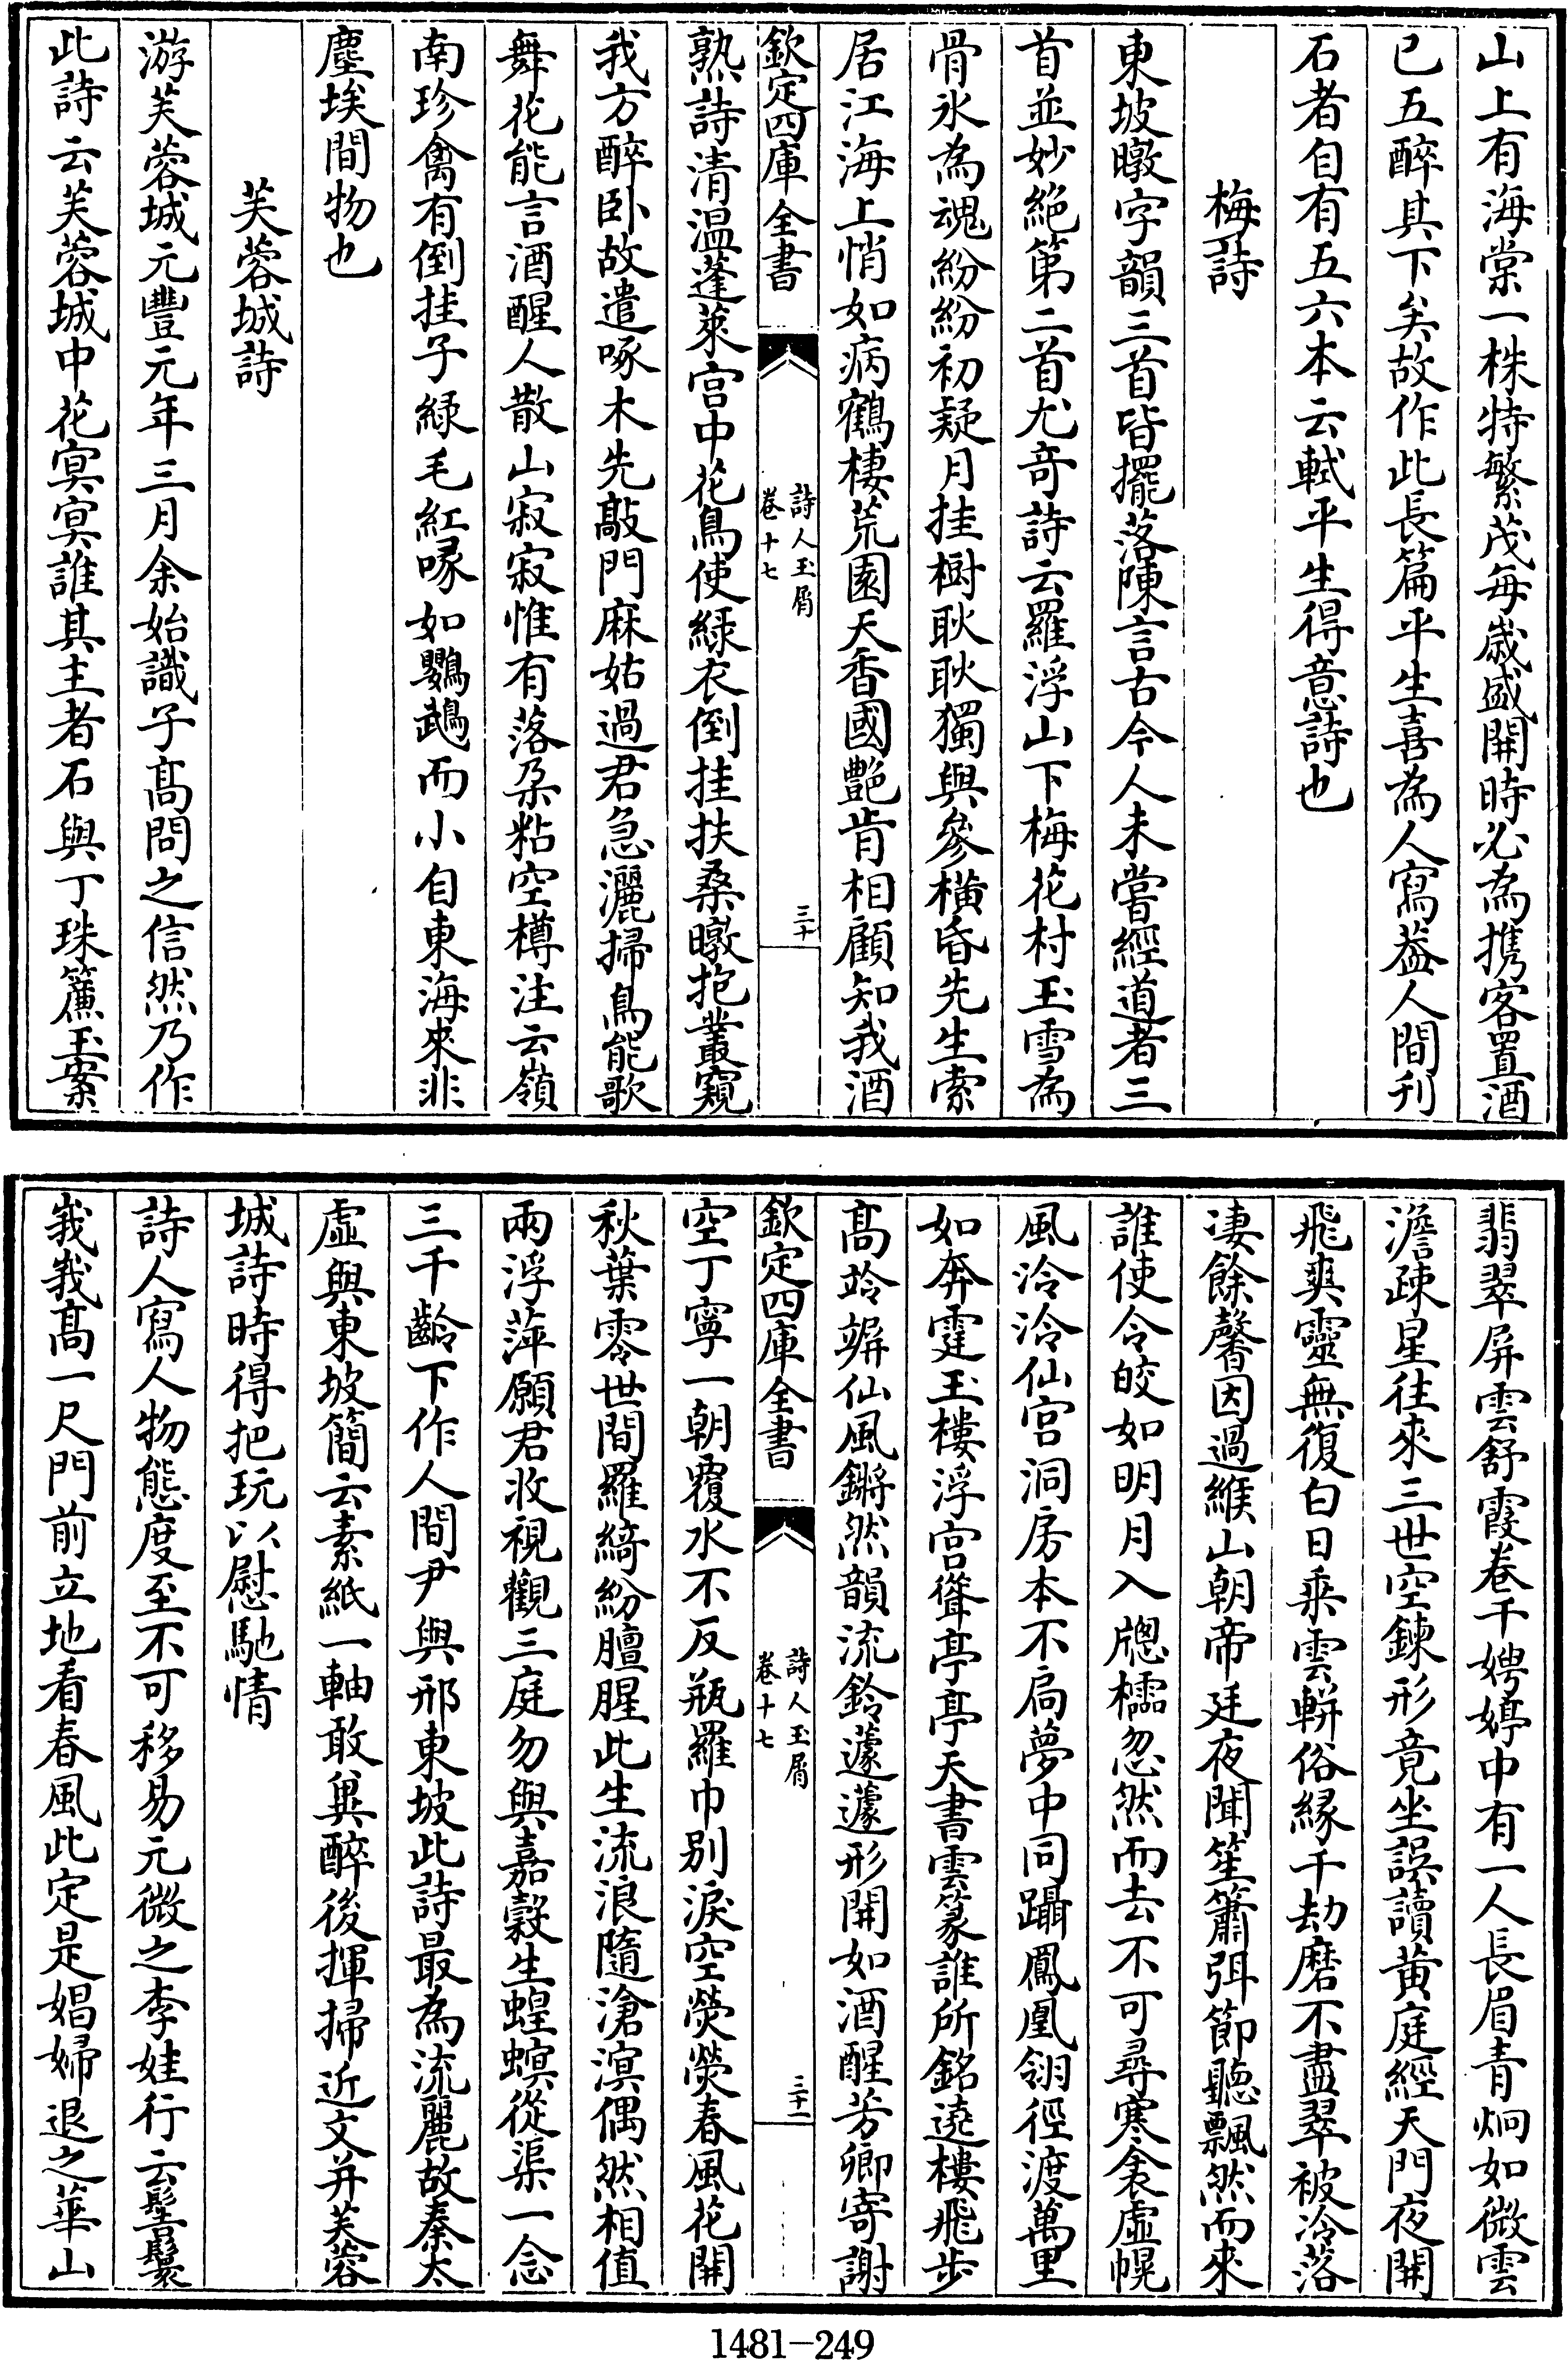 山上有海棠一株特繁茂每歲盛開時必為攜客置酒
已五醉其下矣故作此長篇平生喜為人寫葢人間刋
石者自有五六本云軾平生得意詩也
梅詩
東坡暾字韻三首皆擺落陳言古今人未嘗經道者三
首並妙絶第二首尤竒詩云羅浮山下梅花村玉雪為
骨氷為魂紛紛初疑月挂樹耿耿獨與參橫昏先生索
居江海上悄如病鶴棲荒園天香國艷肯相顧知我酒
欽定四庫全書
詩人玉屑
卷十七
三十
熟詩清温蓬萊宫中花鳥使緑衣倒挂扶桑暾抱叢窺
我方醉卧故遣啄木先敲門麻姑過君急灑掃鳥能歌
舞花能言酒醒人散山寂寂惟有落朶粘空樽注云嶺
南珍禽有倒挂子緑毛紅啄如鸚鵡而小自東海來非
塵埃間物也
芙蓉城詩
游芙蓉城元豐元年三月余始識子髙問之信然乃作
此詩云芙蓉城中花㝠㝠誰其主者石與丁珠簾玉案
翡翠屏雲舒霞卷千娉婷中有一人長眉青炯如微雲
澹疎星往來三世空鍊形竟坐誤讀黄庭經天門夜開
飛爽靈無復白日乘雲軿俗縁千劫磨不盡翠被冷落
凄餘馨因過緱山朝帝廷夜聞笙簫弭節聽飄然而來
誰使令皎如明月入牕櫺忽然而去不可尋寒衾虛幌
風泠泠仙宫洞房本不扃夢中同躡鳳凰翎徑渡萬里
如奔霆玉樓浮宫聳亭亭天書雲篆誰所銘遶樓飛步
髙竛竮仙風鏘然韻流鈴蘧蘧形開如酒醒芳卿寄謝
欽定四庫全書
詩人玉屑
卷十七
三十一
空丁寧一朝覆水不反瓶羅巾别淚空熒熒春風花開
秋葉零世間羅綺紛膻腥此生流浪隨滄溟偶然相值
兩浮萍願君收視觀三庭勿與嘉穀生蝗螟從渠一念
三千齡下作人間尹與邢東坡此詩最為流麗故秦太
虛與東坡簡云素紙一軸敢兾醉後揮掃近文并芙蓉
城詩時得把玩以慰馳情
詩人寫人物態度至不可移易元微之李娃行云髻鬟
峩峩髙一尺門前立地看春風此定是娼婦退之華山
1481-249